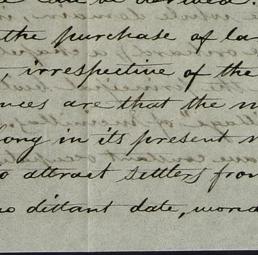 the purchase of la
, irrespective of the
nces are that the m
ong in its present
o attract settlers from
no distant date, would